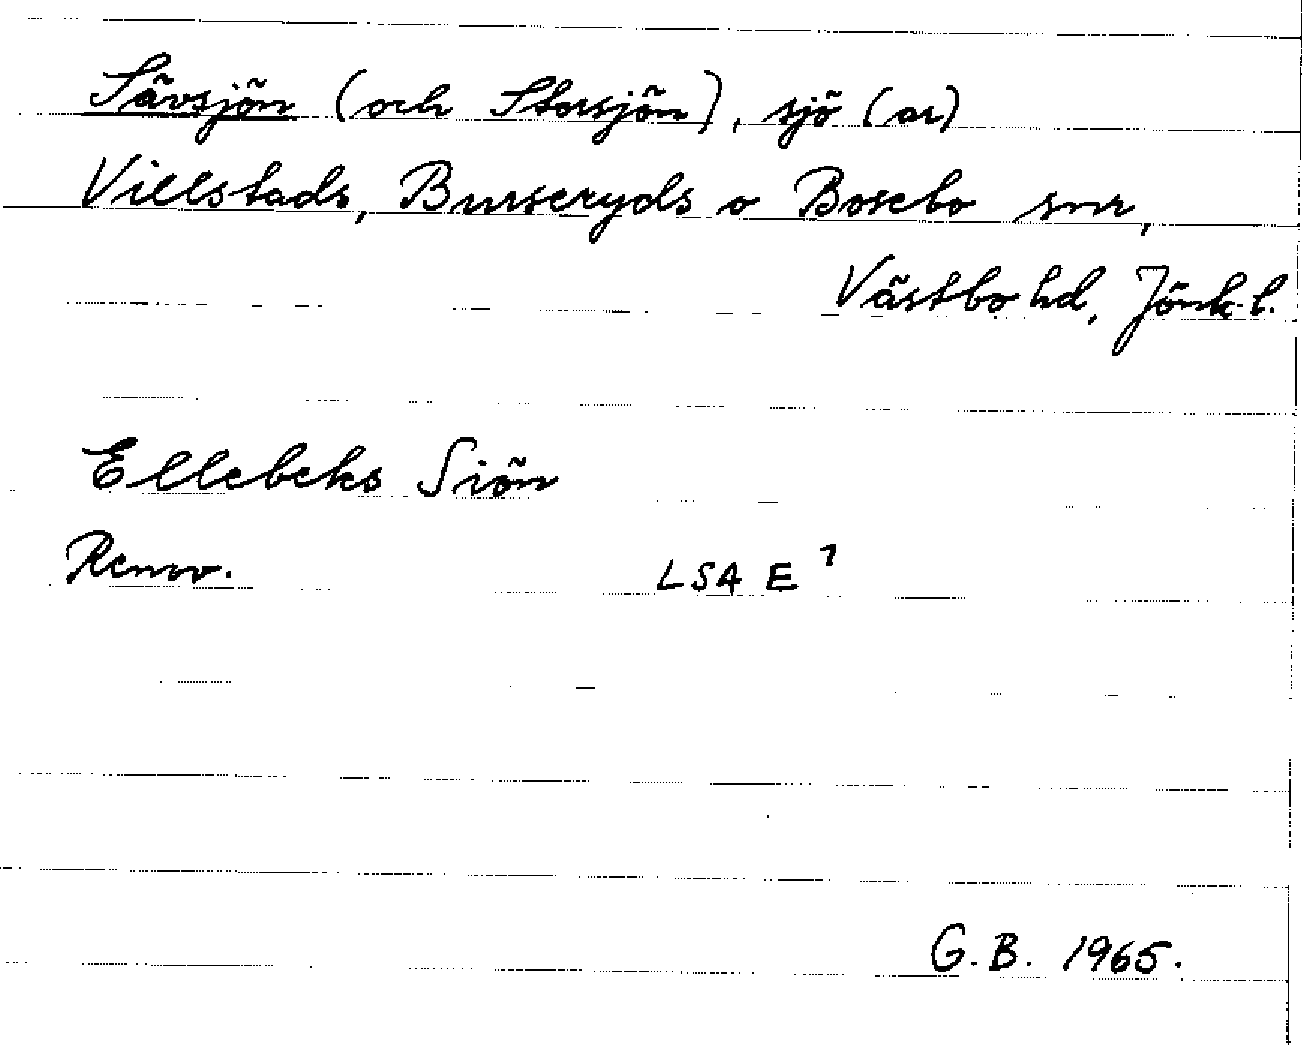 Sävsjön (och Storsjön), sjö (ar)
Villstads, Burseryds o Bosebo snr,
Västbo hd, Jönk. l.
Ellebeks Siön
Renov. LSA E 7
G.B. 1965.